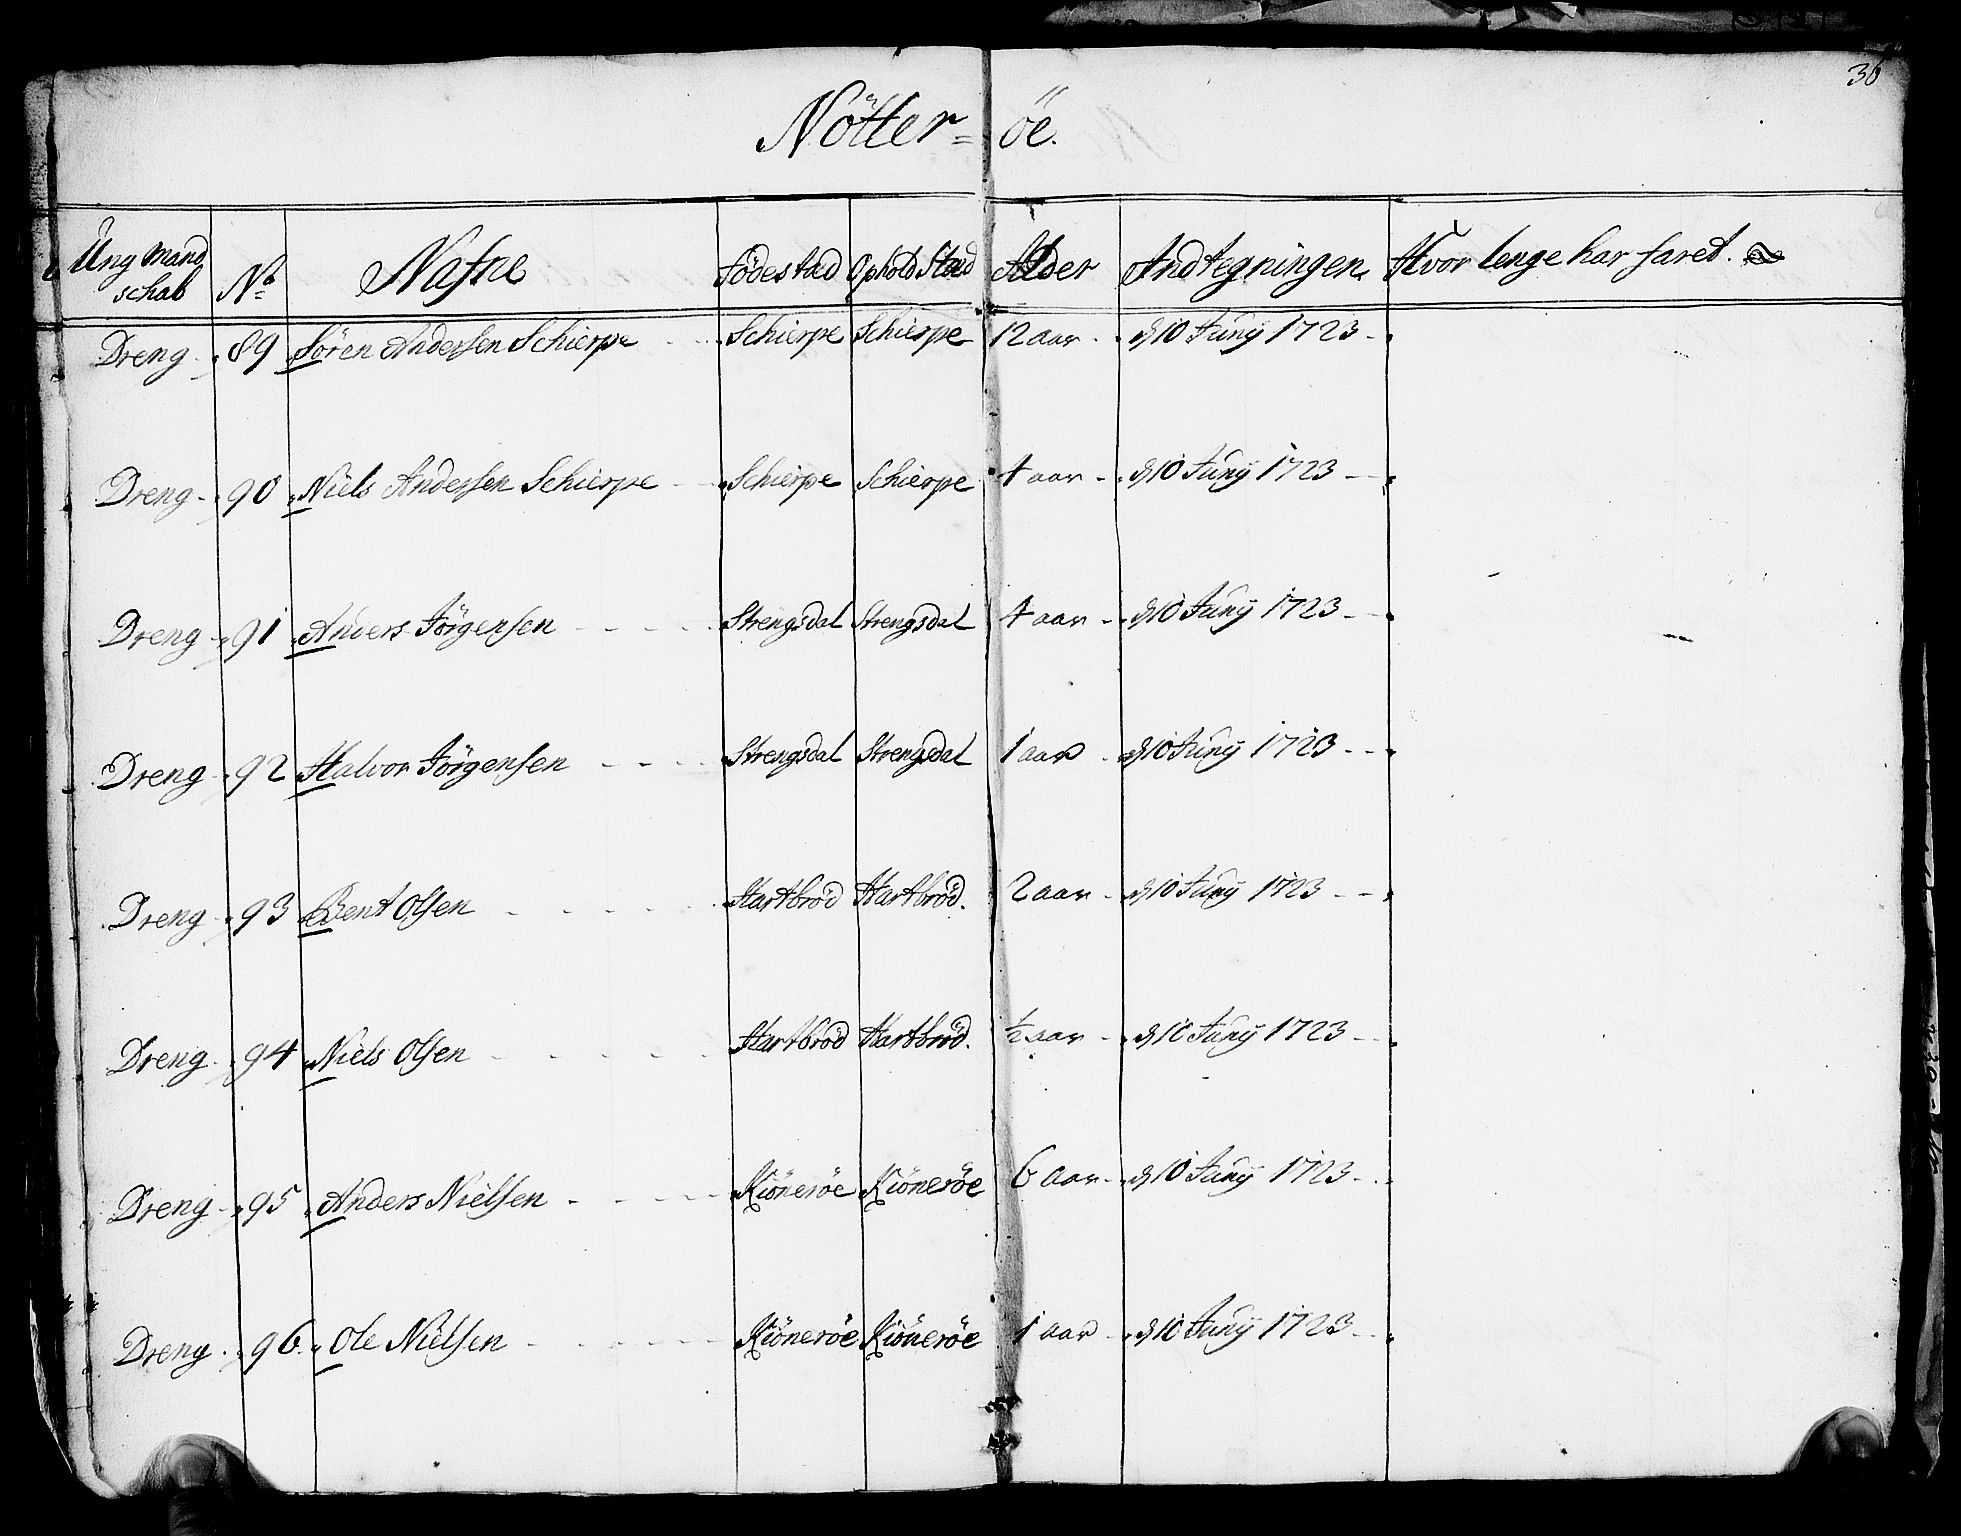 36
Nötter= öe.
Ung Mand schab No Nafne Födestæd Ophold Stæd Alder Andtegningen Hvor lenge har faret.
Dreng - 89 Sören Andersen Schierpe Schierpe Schierpe 12 aar d 10 Junÿ 1723
Dreng - 90 Niels Andersen Schierpe Schierpe Schierpe 4 aar - d 10 Junÿ 1723
Dreng - 91 Anders Jörgensen Strengsdal Strengsdal 4 aar - d 10 Junÿ 1723
Dreng - 92 Halvor Jörgensen Strengsdal Strengsdal 1 aar d 10 Junÿ 1723
Dreng - 93 Bent Olsen Hartbröd Hartbröd. 2 aar - d 10 Junÿ 1723
Dreng - 94 Niels Olsen Hartbröd Hartbröd. ½ aar - d 10 Junÿ 1723
Dreng - 95 Anders Nielsen Kiöneröe Kiöneröe 6 aar - d 10 Junÿ 1723
Dreng - 96 Ole Nielsen Kiöneröe Kiöneröe 1 aar d 10 Junÿ 1723